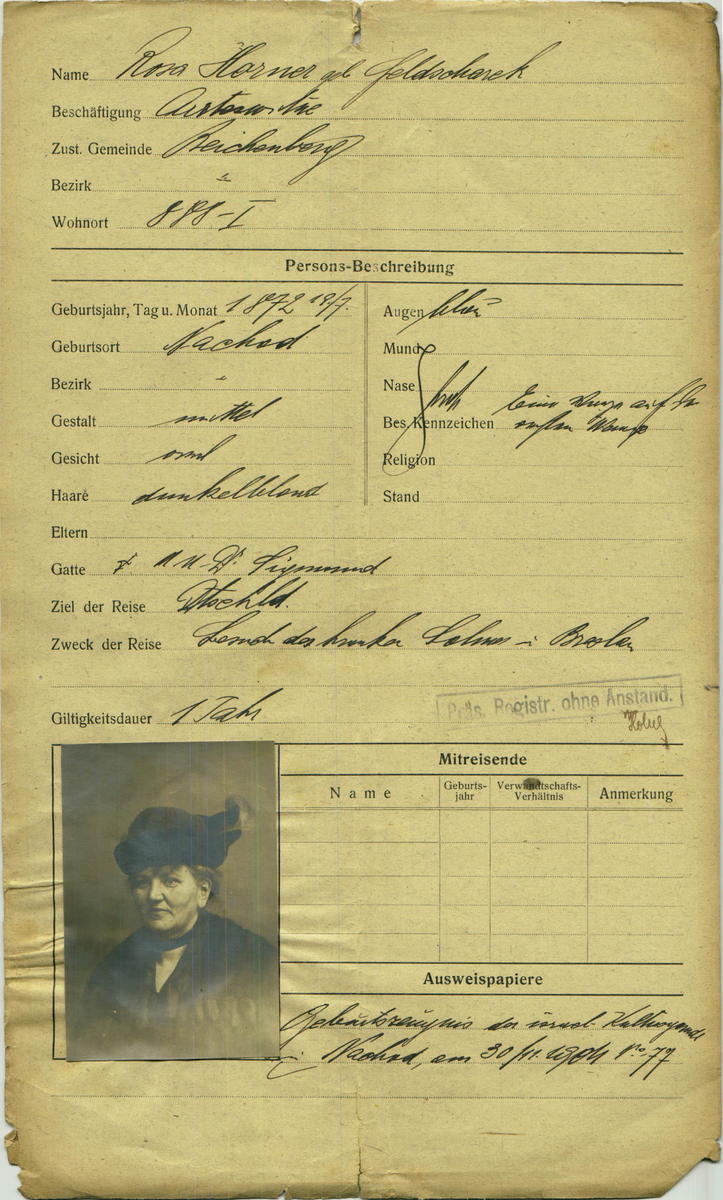 Name Rosa Horner geb Feldscharek
Beschäftigung Arztenswitwe
Zust. Gemeinde Reichenberg
Bezirk "
Wohnort 888-I
Persons-Beschreibung
Geburtsjahr, Tag u. Monat 1872 19/7.
Geburtsort Nachod
Bezirk "
Gestalt mittel
Gesicht oval
Haare dunkelblond
Augen blau
Mund
Nase
Bes. Kennzeichen Eine auf der
Religion
Stand
Eltern
Gatte Dr. Sigmund
Ziel der Reise Dtschld.
Zweck der Reise Besuch des kranken Sohnes in Breslau
Giltigkeitsdauer 1 Jahr
Präs. Registr. ohne Anstand.
Mitreisende
Name Geburts-jahr Verwandtschafts-Verhältnis Anmerkung
Ausweispapiere
Geburtszeugnis der israel. Kultusgemde
in Nachod, am 30/11. 1904 No. 77